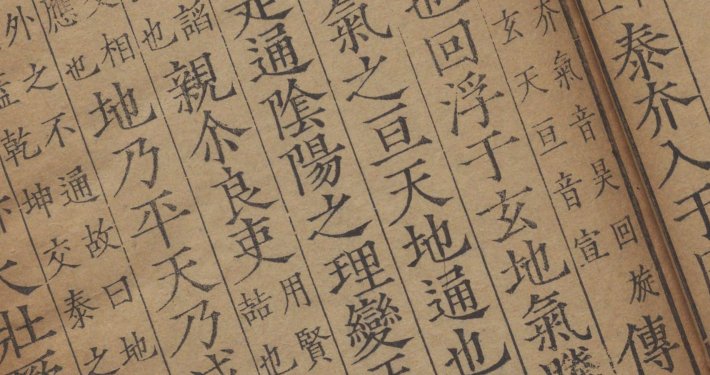 泰夰入于
夰氣音昊回旋
玄天亘音宣
傳
也回浮于玄地氣騰
氣之亘天地通也
是通陰陽之理變
謟
也
親夰良吏
用賢
喆也
相
應也
地乃平天乃成
外之不通故曰地
乾坤交泰之
大壯